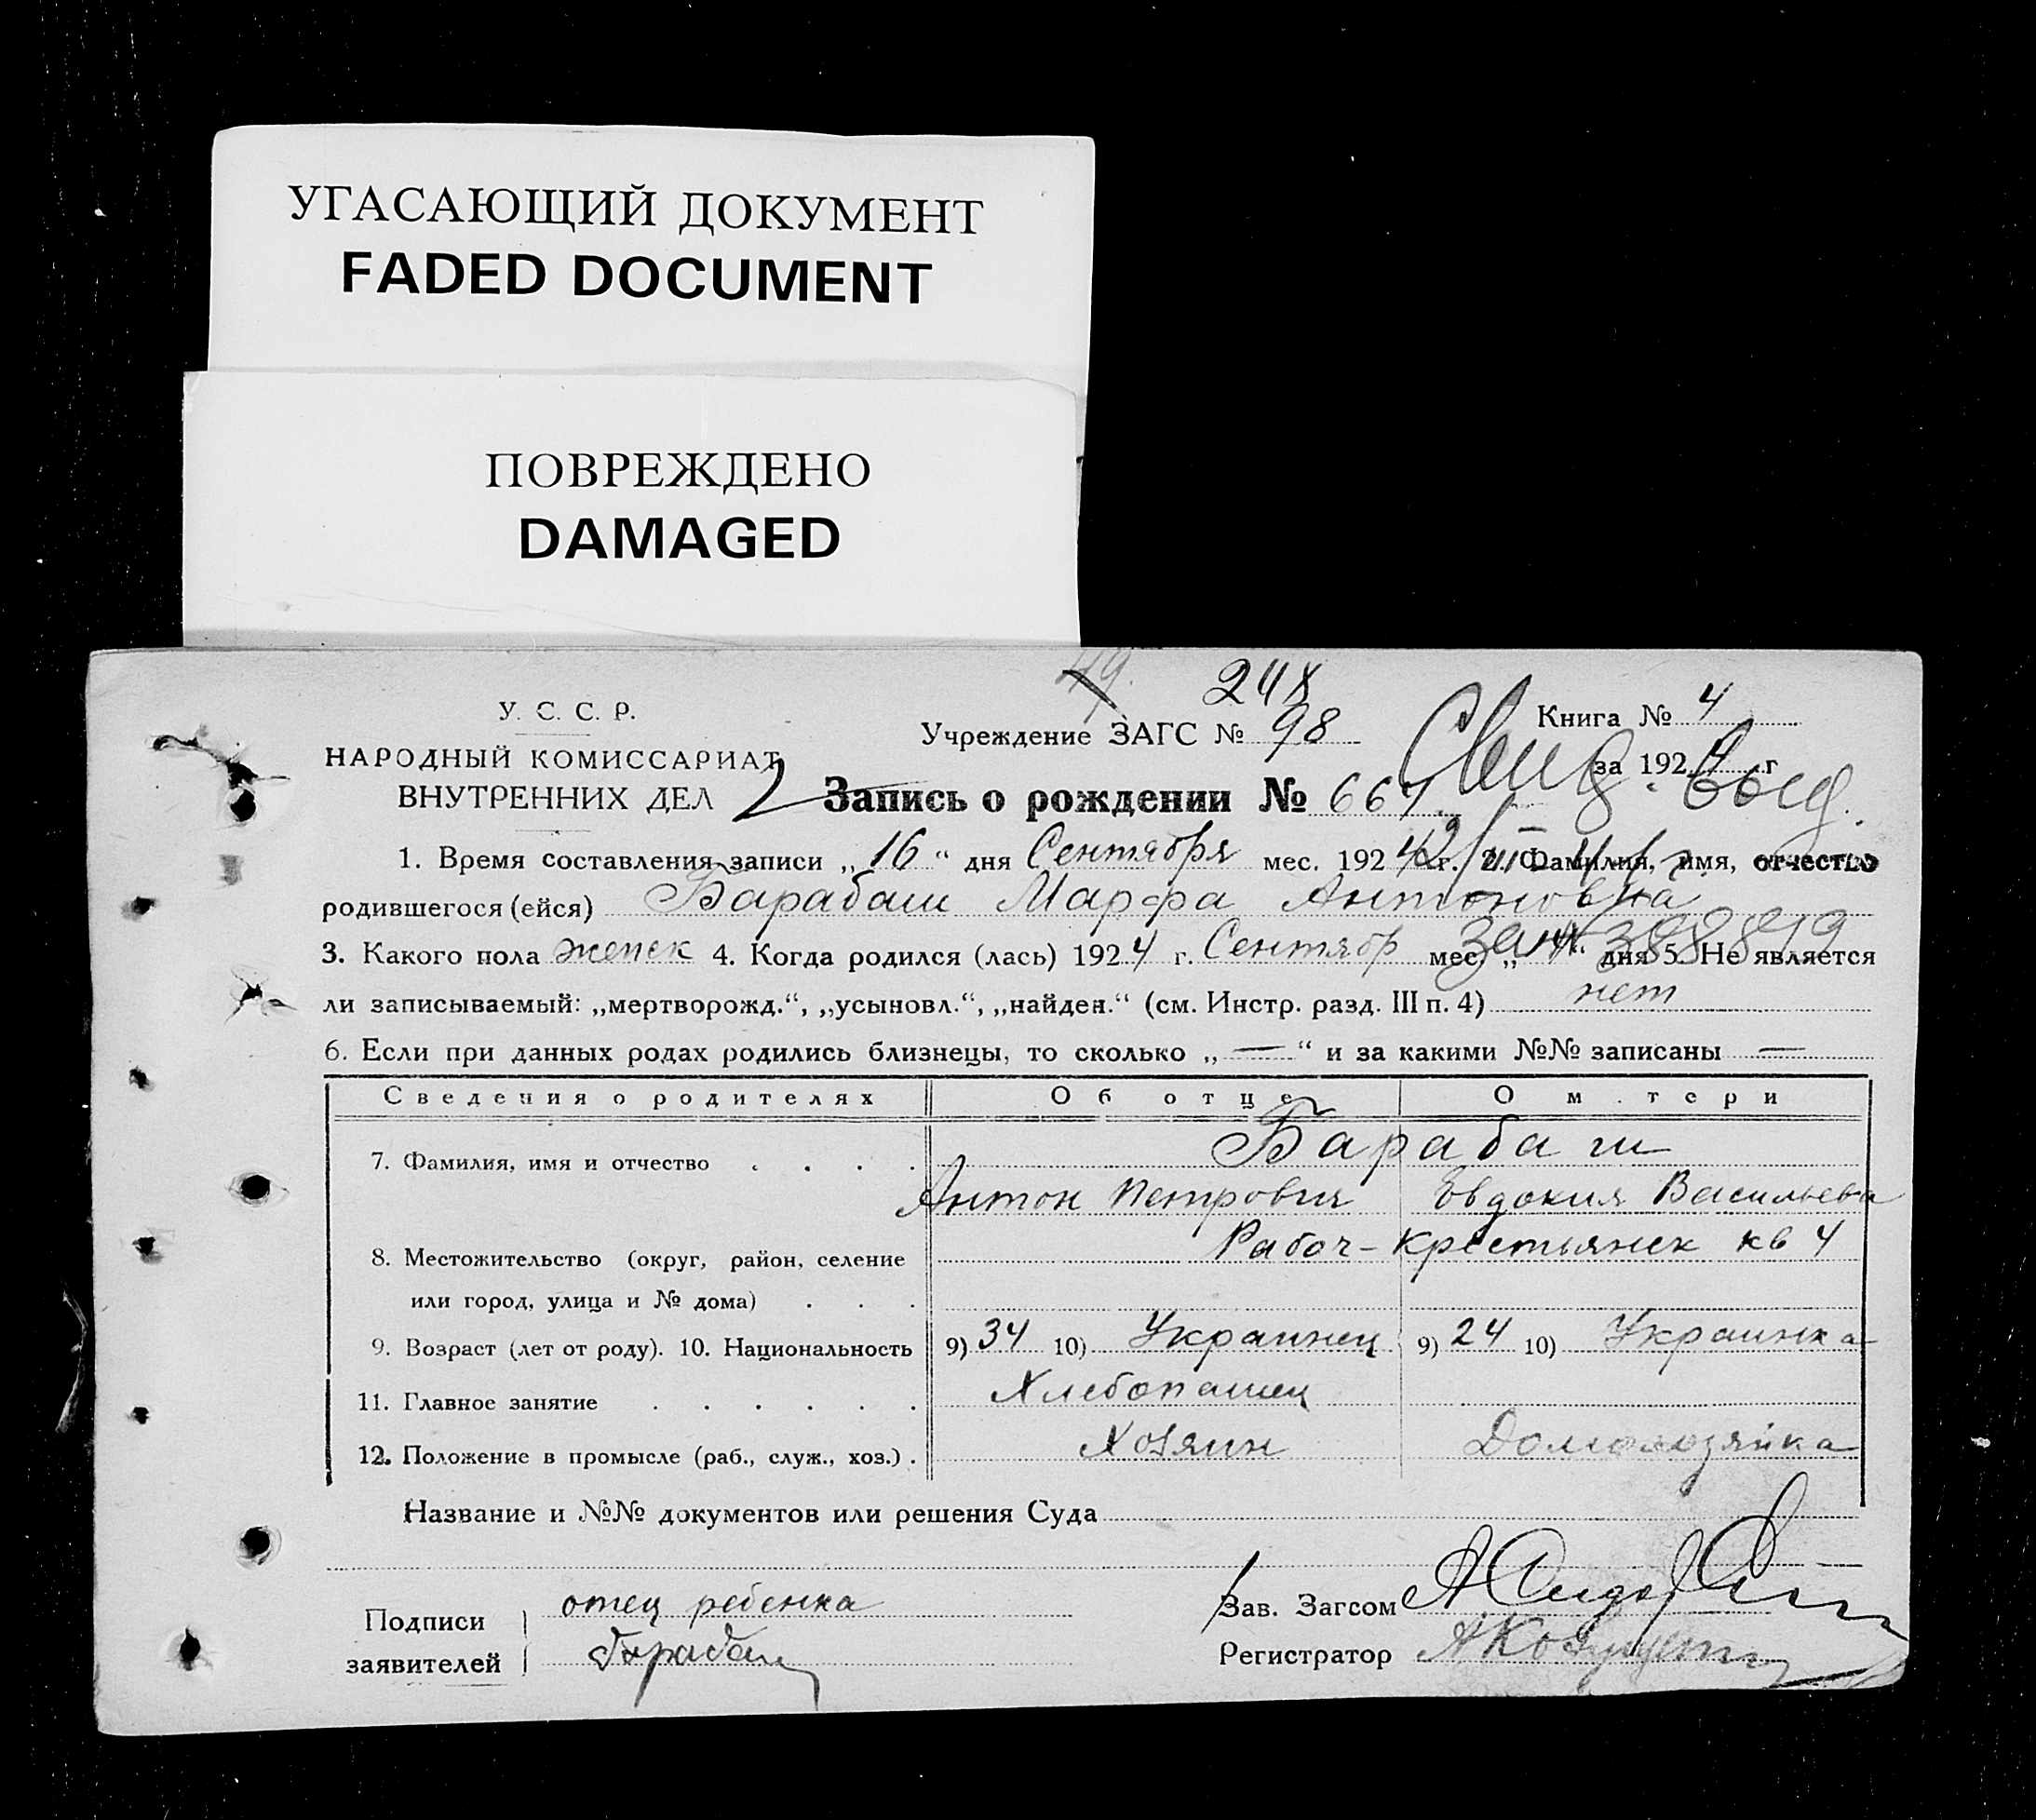 УГАСАЮЩИЙ ДОКУМЕНТ
FADED DOCUMENT
ПОВРЕЖДЕНО
DAMAGED
49.
248
У. С. С. Р.
НАРОДНЫЙ КОМИССАРИАТ
ВНУТРЕННИХ ДЕЛ
Учреждение ЗАГС № 98
Книга № 4
за 1924 г
Свид. выд.
2
Запись о рождении № 667
1. Время составления записи „16“ дня Сентября мес. 1924 г. 2. Фамилия, имя, отчество
родившегося (ейся) Барабаш Марфа Антоновна
3. Какого пола женск 4. Когда родился (лась) 1924 г. Сентябр мес. „14“ дня 5. Не является
ли записываемый: „мертворожд.“, „усыновл.“, „найден.“ (см. Инстр. разд. III п. 4) нет
6. Если при данных родах родились близнецы, то сколько „—“ и за какими №№ записаны —
Сведения о родителях Об отце О м.тери
7. Фамилия, имя и отчество . . . . Барабаш
Антон Петрович Евдокия Васильева
8. Местожительство (округ, район, селение Рабоч-Крестьянск кв 4
или город, улица и № дома) . . .
9. Возраст (лет от роду). 10. Национальность 9) 34 10) Украинец 9) 24 10) Украинка
11. Главное занятие . . . . . . Хлебопашец
12. Положение в промысле (раб., служ., хоз.) . Хозяин Домохозяйка
Название и №№ документов или решения Суда
Подписи
заявителей
отец ребенка
Барабаш
Зав. Загсом
Регистратор